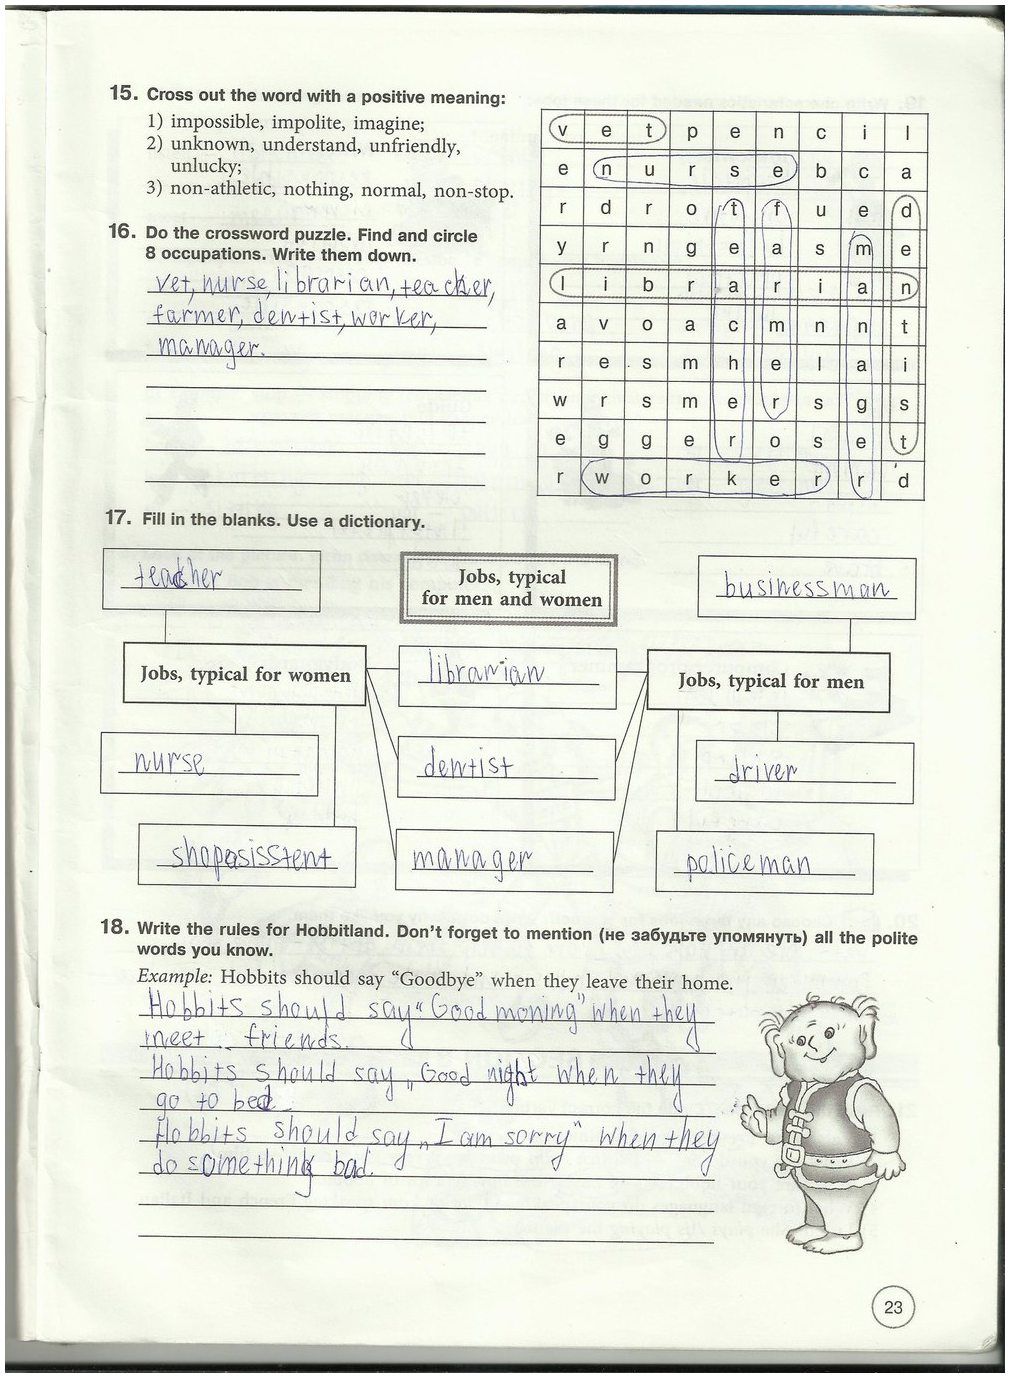 15. Cross out the word with a positive meaning:
1) impossible, impolite, imagine;
2) unknown, understand, unfriendly,
unlucky;
3) non-athletic, nothing, normal, non-stop.
16. Do the crossword puzzle. Find and circle
8 occupations. Write them down.
vet, nurse, librarian, teacher,
farmer, dentist, worker,
manager.
v e t p e n c i l
e n u r s e b c a
r d r o t f u e d
y r n g e a s m e
l i b r a r i a n
a v o a c m n n t
r e s m h e l a i
w r s m e r s g s
e g g e r o s e t
r w o r k e r r d
17. Fill in the blanks. Use a dictionary.
teacher
Jobs, typical
for men and women
businessman
Jobs, typical for women
librarian
Jobs, typical for men
nurse
dentist
driver
shopasisstent
manager
policeman
18. Write the rules for Hobbitland. Don't forget to mention (не забудьте упомянуть) all the polite
words you know.
Example: Hobbits should say “Goodbye” when they leave their home.
Hobbits should say “Good moning” when they
meet friends.
Hobbits should say „Good night when they
go to bed
Hobbits should say „I am sorry” when they
do something bad.
23